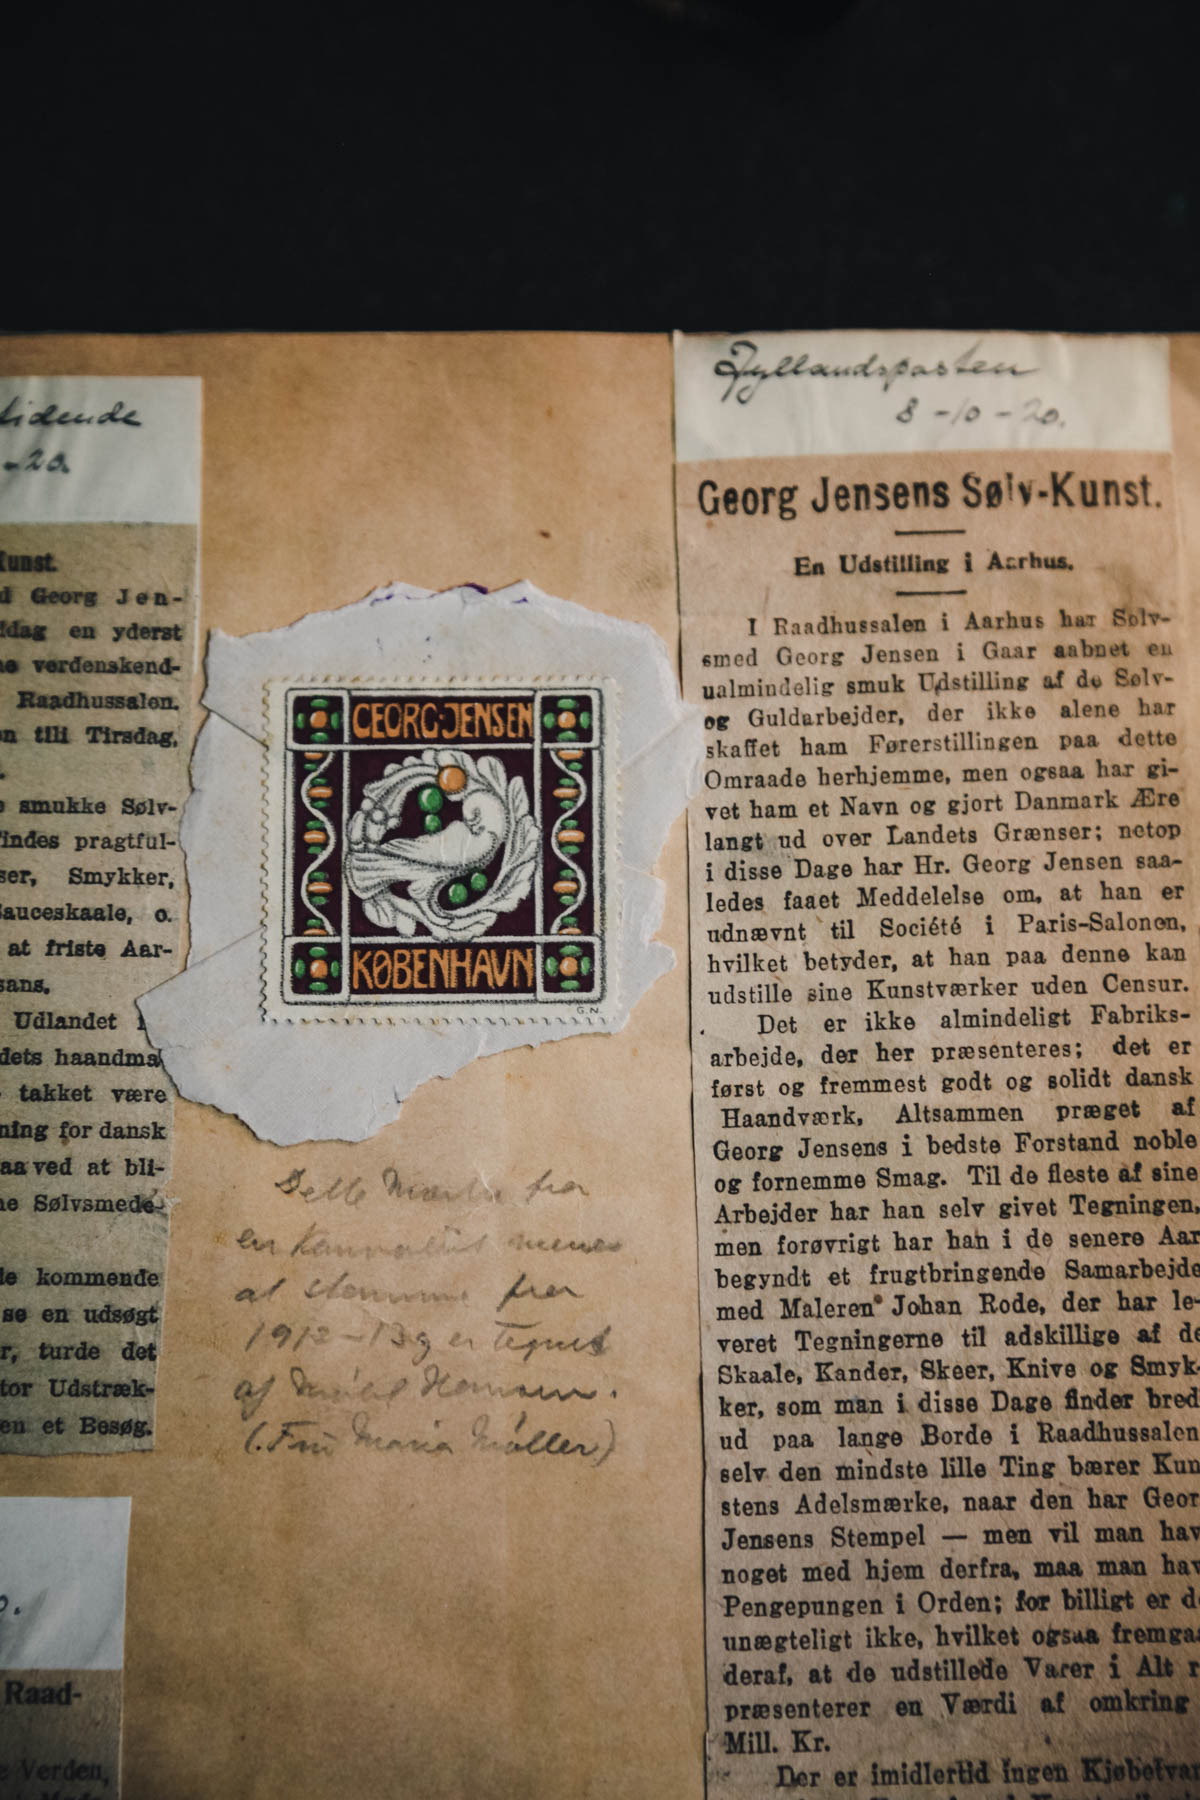 tidende
-20.
Kunst.
d Georg Jen-
ddag en yderst
ne verdenskend-
Raadhussalen.
n till Tirsdag,
e smukke Sølv-
findes pragtful-
ser, Smykker,
Sauceskaale, o.
at friste Aar-
sans.
Udlandet
dets haandma
takket være
ning for dansk
aa ved at bli-
ne Sølvsmede-
de kommende
se en udsøgt
r, turde det
tor Udstræk-
en et Besøg.
Raad-
e Verden,
GEORG·JENSEN
KØBENHAVN
G.N.
Dette Mærke fra
en menes
at stamme fra
1912-13 og er tegnet
af Hansen.
(.Fru Maria Møller)
Jyllandsposten
8-10-20.
Georg Jensens Sølv-Kunst.
En Udstilling i Aarhus.
I Raadhussalen i Aarhus har Sølv-
smed Georg Jensen i Gaar aabnet en
ualmindelig smuk Udstilling af de Sølv-
og Guldarbejder, der ikke alene har
skaffet ham Førerstillingen paa dette
Omraade herhjemme, men ogsaa har gi-
vet ham et Navn og gjort Danmark Ære
langt ud over Landets Grænser; netop
i disse Dage har Hr. Georg Jensen saa-
ledes faaet Meddelelse om, at han er
udnævnt til Société i Paris-Salonen,
hvilket betyder, at han paa denne kan
udstille sine Kunstværker uden Censur.
Det er ikke almindeligt Fabriks-
arbejde, der her præsenteres; det er
først og fremmest godt og solidt dansk
Haandværk, Altsammen præget af
Georg Jensens i bedste Forstand noble
og fornemme Smag. Til de fleste af sine
Arbejder har han selv givet Tegningen,
men forøvrigt har han i de senere Aar
begyndt et frugtbringende Samarbejde
med Maleren Johan Rode, der har le-
veret Tegningerne til adskillige af de
Skaale, Kander, Skeer, Knive og Smyk-
ker, som man i disse Dage finder bred
ud paa lange Borde i Raadhussalen
selv den mindste lille Ting bærer Kun
stens Adelsmærke, naar den har Geor
Jensens Stempel — men vil man hav
noget med hjem derfra, maa man hav
Pengepungen i Orden; for billigt er d
unægteligt ikke, hvilket ogsaa fremgaa
deraf, at de udstillede Varer i Alt r
præsenterer en Værdi af omkring
Mill. Kr.
Der er imidlertid ingen Kjøbetvan